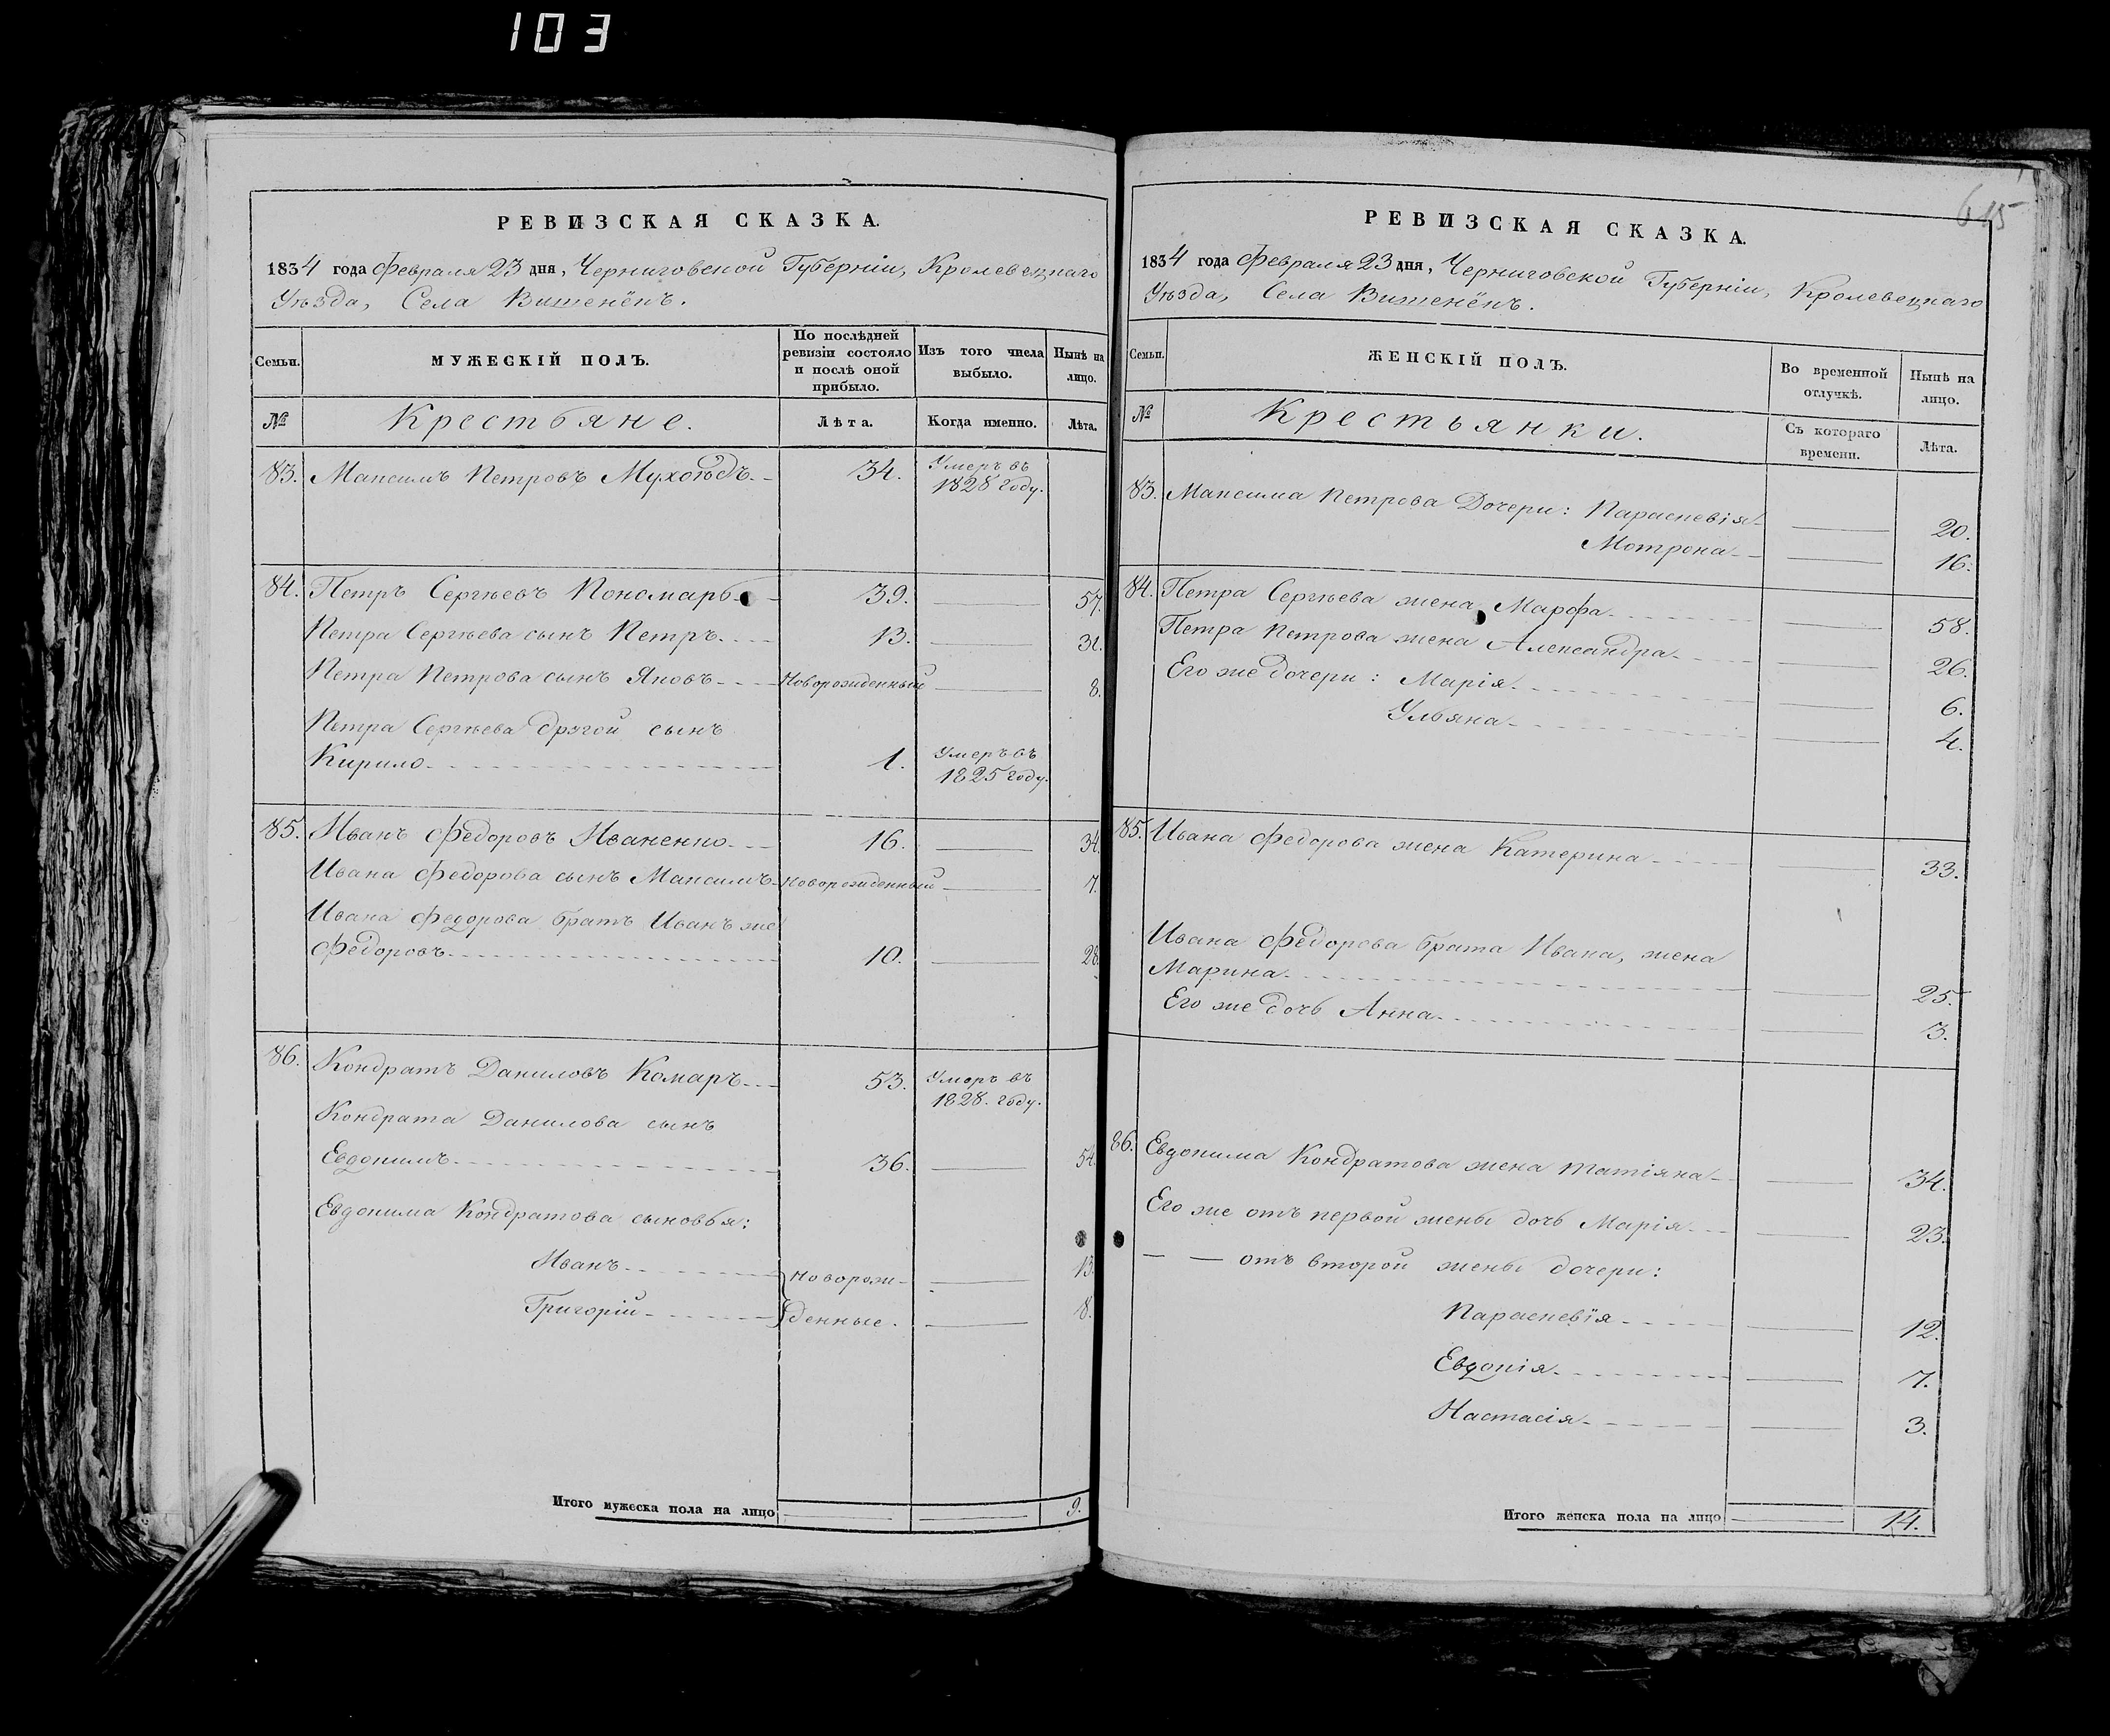 103
РЕВИЗСКАЯ СКАЗКА.
1834 года Февраля 23 дня, Черниговской Губерніи, Кролевецкаго
Уѣзда, Села Вишенёкъ.
Семьи.
МУЖЕСКІЙ ПОЛЪ.
По послѣдней ревизіи состояло и послѣ оной прибыло.
Изъ того числа выбыло.
Нынѣ на лицо.
№
Крестьяне.
Лѣта.
Когда именно.
Лѣта.
83. Максимъ Петровъ Мухоѣдъ. 34. Умеръ въ 1828 году.
84. Петръ Сергѣевъ Пономарь 39. 57.
Петра Сергѣева сынъ Петръ. 13. 31.
Петра Петрова сынъ Яковъ Новорожденный 8.
Петра Сергѣева другой сынъ
Кирило 1. Умеръ въ 1825 году.
85. Иванъ Федоровъ Иваненко 16. 34.
Ивана Федорова сынъ Максимъ Новорожденный 7.
Ивана Федорова братъ Иванъ же
Федоровъ 10. 28.
86. Кондратъ Даниловъ Комаръ 53. Умеръ въ 1828. году.
Кондрата Данилова сынъ
Евдокимъ 36. 54.
Евдокима Кондратова сыновья:
Иванъ Новорож- 13.
Григорій денные. 8.
Итого мужеска пола на лицо 9.
615
РЕВИЗСКАЯ СКАЗКА.
1834 года Февраля 23 дня, Черниговской Губерніи, Кролевецкаго
Уѣзда, Села Вишенёкъ.
Семьи.
ЖЕНСКІЙ ПОЛЪ.
Во временной отлучкѣ.
Нынѣ на лицо.
№
Крестьянки.
Съ котораго времени.
Лѣта.
83. Максима Петрова Дочери: Параскевія 20.
Мотрона 16.
84. Петра Сергѣева жена Марфа 58.
Петра Петрова жена Александра 26.
Его же дочери: Марія 6.
Ульяна 4.
85. Ивана Федорова жена Катерина 33.
Ивана Федорова брата Ивана, жена
Марина 25.
Его же дочь Анна 3.
86. Евдокима Кондратова жена Татіяна 34.
Его же отъ первой жены дочь Марія 23.
— — отъ второй жены дочери:
Параскевія 12.
Евдокія 7.
Настасія 3.
Итого женска пола на лицо 14.